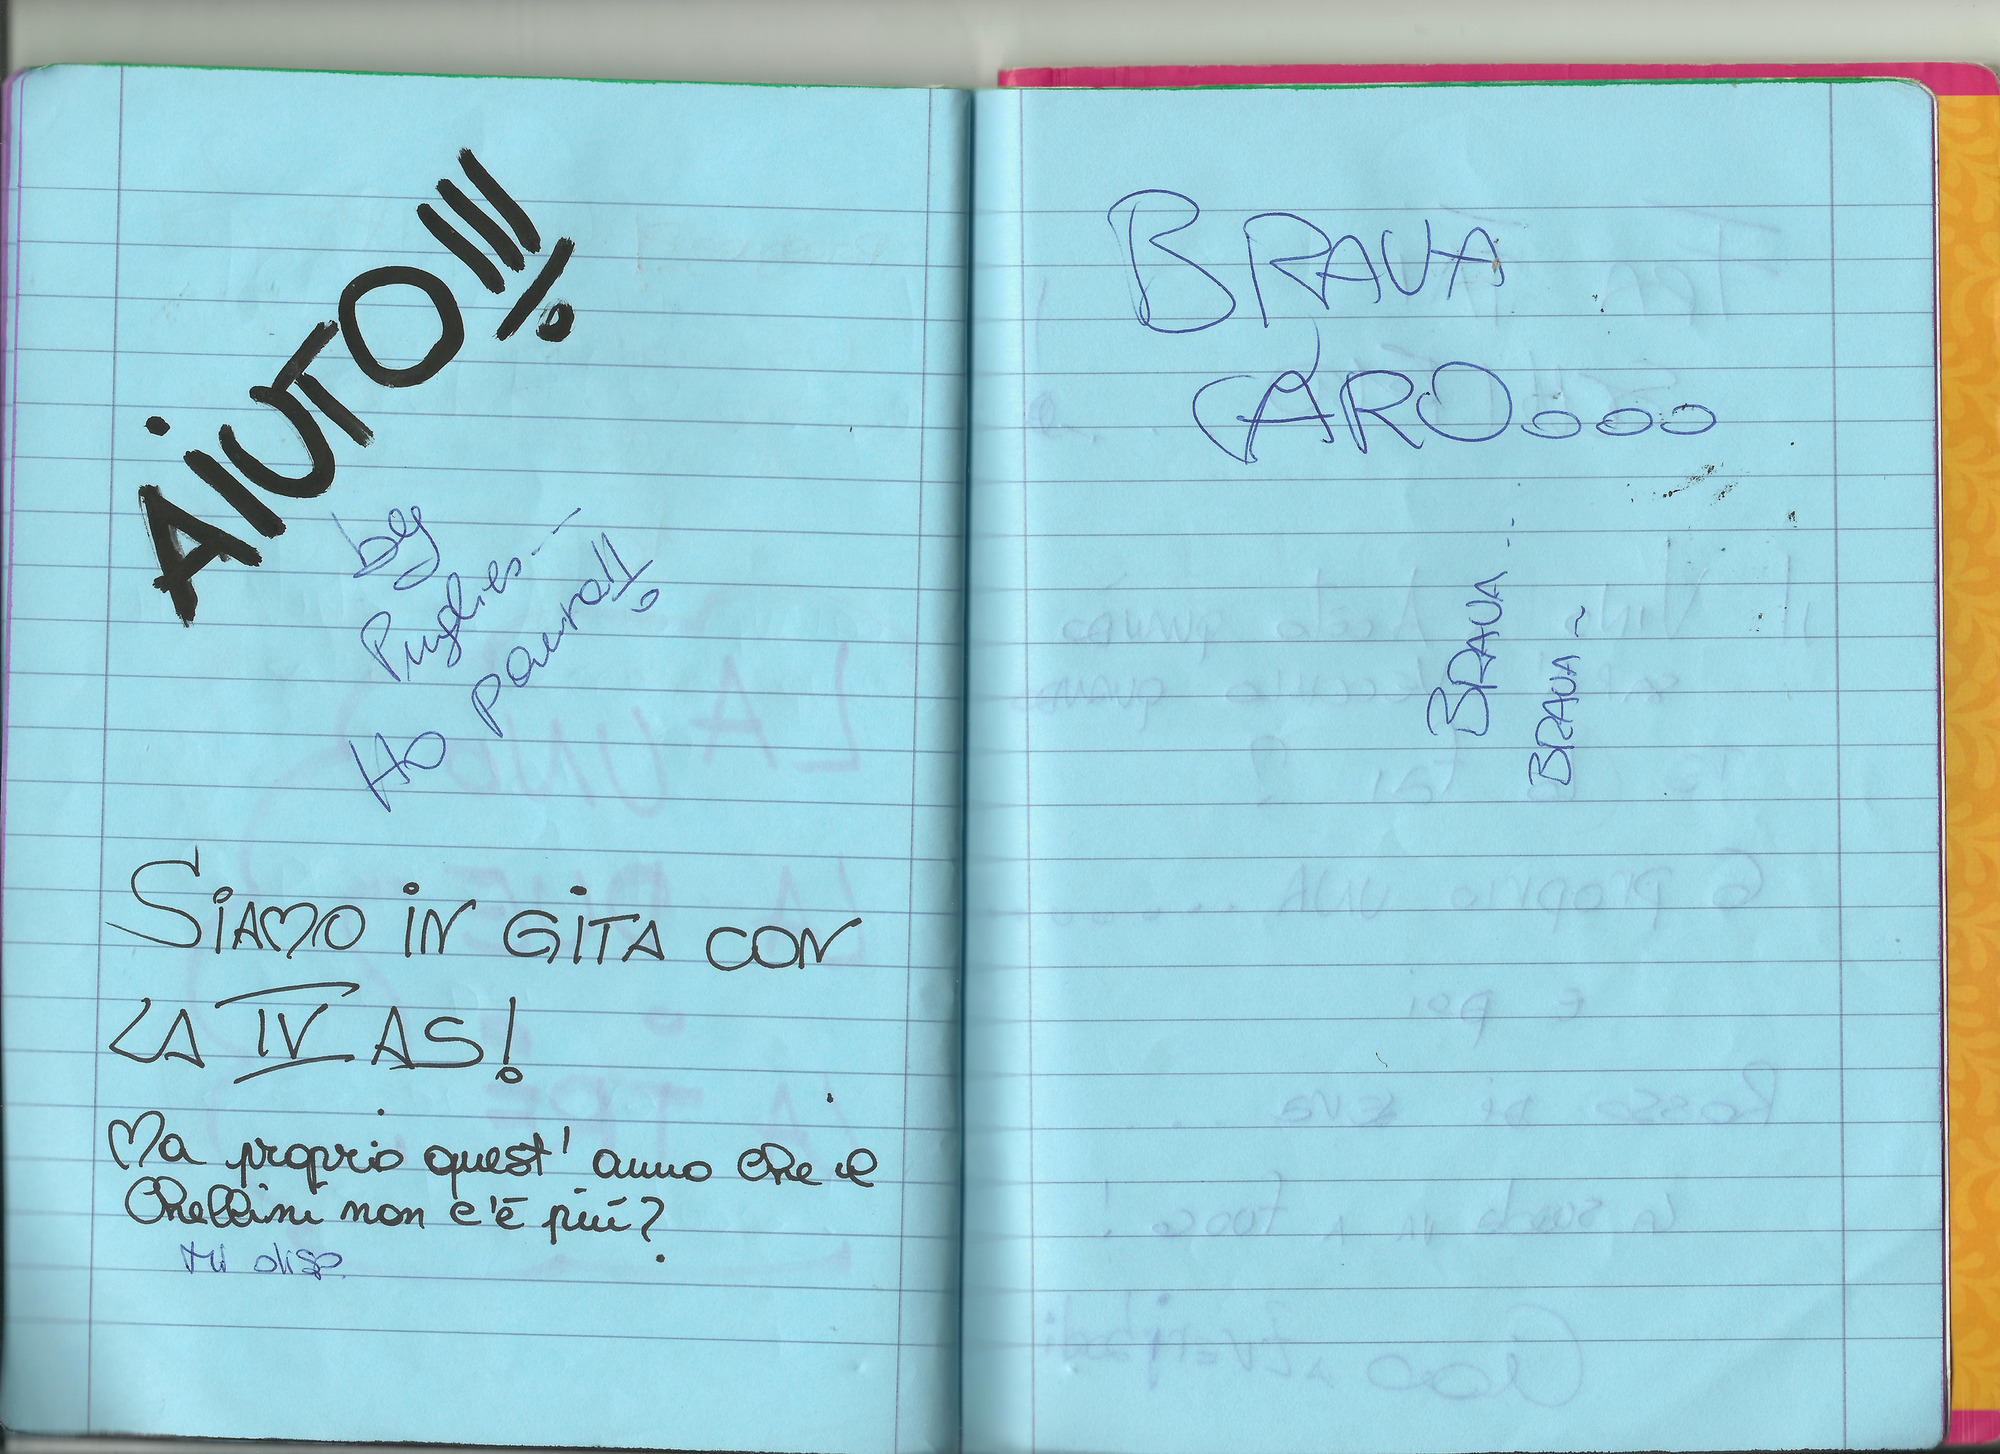 AIUTO!!!
by
Puglies--
Ho paura!!!
SIAMO IN GITA CON
LA IV AS!
Ma proprio quest'anno che il
Chellini non c'è più?
Mi disp.
BRAVA
CARO...
BRAVA..
BRAVA~